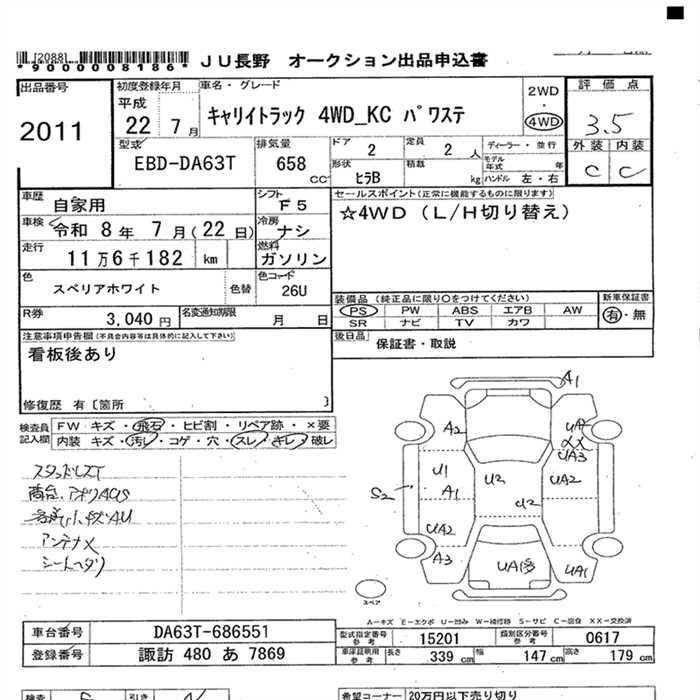 [2088]
*9000008186*
JU長野 オークション出品申込書
出品番号
2011
初度登録年月
平成
22年 7月
車名・グレード
キャリイトラック 4WD_KC パワステ
2WD
・
4WD
評価点
3.5
外装 内装
C C
型式
EBD-DA63T
排気量
658
CC
ドア
2
定員
2 人
形状
ヒラB
積載
kg
ディーラー・並行
モデル年式 年
ハンドル 左・右
車歴
自家用
シフト
F5
車検
令和 8年 7月(22日)
冷房
ナシ
走行
11万6千182 km
燃料
ガソリン
色
スペリアホワイト
色替
色コード
26U
R券
3,040円
名変通知期限
月 日
セールスポイント(正常に機能するものに限ります)
☆4WD(L/H切り替え)
装備品(純正品に限り○をつけてください)
PS PW ABS エアB AW
SR ナビ TV カワ
新車保証書
有・無
後日品
保証書・取説
注意事項申告欄(不具合内容等は具体的に記入して下さい)
看板後あり
修復歴 有〔箇所 〕
検査員記入欄
FW キズ・飛石・ヒビ割・リペア跡・×要
内装 キズ・汚レ・コゲ・穴・スレ・キレ・破レ
スタッドレスT
アンテナX
シートヘタリ
A1
A2
UA
XX
UA3
U1
A1
U2
UA2
U2
S2
UA2
A3
UA多
UA1
スペア
A-キズ E-エクボ U-凹み W-補修跡 S-サビ C-腐食 XX-交換済
車台番号
DA63T-686551
登録番号
諏訪 480 あ 7869
型式指定番号
参考
15201
類別区分番号
参考
0617
車庫証明用
参考
長さ
339 cm
幅
147 cm
高さ
179 cm
検査
引き
希望コーナー
20万円以下売り切り